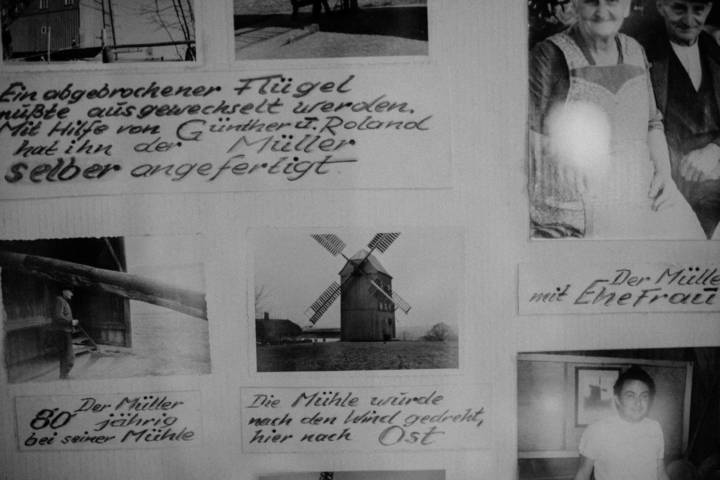 Ein abgebrochener Flügel
müßte ausgewechselt werden.
Mit Hilfe von Günther u. Roland
hat ihn der Müller
selber angefertigt.
Der Müller
mit Ehefrau
80 Der Müller
jährig
bei seiner Mühle
Die Mühle wurde
nach den Wind gedreht,
hier nach Ost